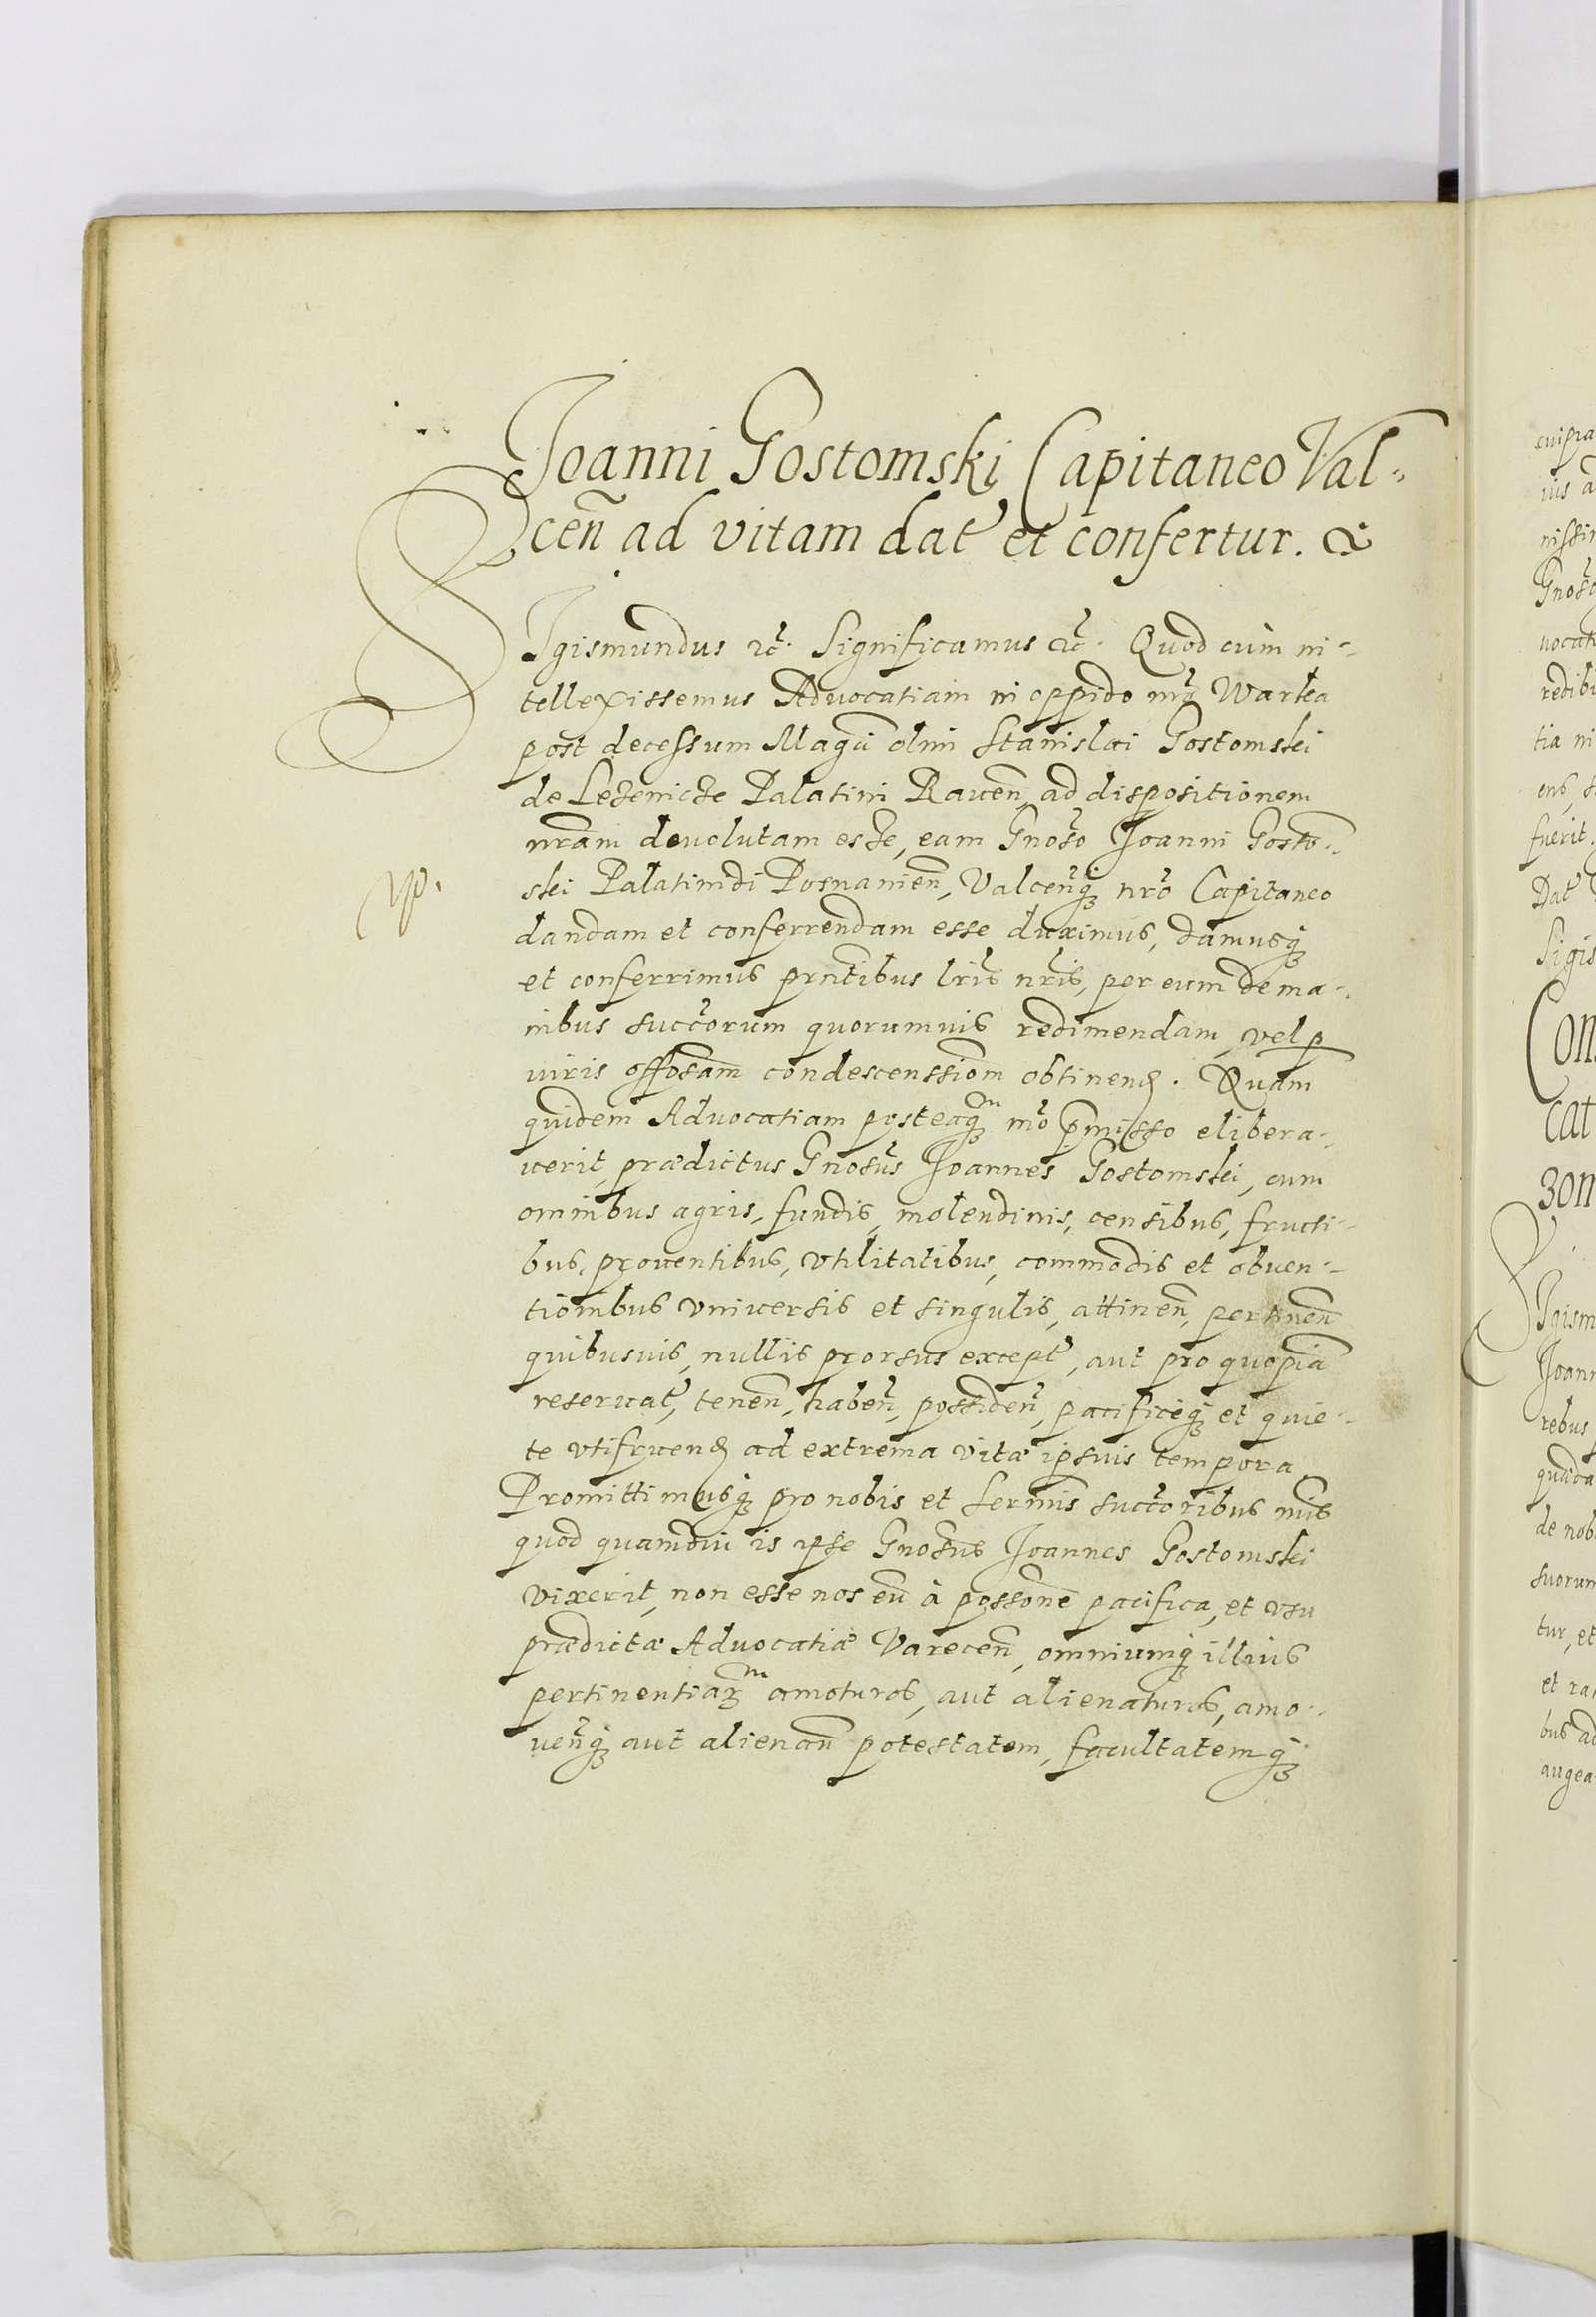 Joanni Gostomski Capitaneo Val-
cen̄ ad vitam dat et confertur. &
SIgismundus etc. Significamus etc. Quod cum in-
tellexissemus Advocatiam in oppido nrō Warka
post decessum Magci olim Stanislai Gostomski
de Lezenicze Palatini Raven̄ ad dispositionem
nram̄ devolutam esse, eam Gnoso Joanni Gosto-
ski Palatinidi Posnanien̄, Valcen̄q nrō Capitaneo
dandam et conferrendam esse duximus, damusq
et conferrimus prn̄tibus lris nris, per eum de ma-
nibus succorum quorumvis redimendam, vel p
viris offosam condescenssiom̄ obtinend. Quam
quidem Advocatiam posteaqm mō p̄misso elibera-
verit, prædictus Gnosus Joannes Gostomski, cum
omnibus agris, fundis, molendinis, censibus, fructi-
bus, proventibus, vtilitatibus, commodis et obven-
tionibus vniversis et singulis, attinen̄, pertinen̄
quibusvis, nullis prorsus except, aut pro quopiā
reservat, tenen̄, haben̄, possiden̄, pacificeq et quie-
te vtifruend ad extrema vitæ ipsius tempora
Promittimusq pro nobis et Sermis succoribus nris
quod quamdiu is ipse Gnosus Joannes Gostomski
vixerit, non esse nos eū à possone pacifica, et vsu
prædictæ Advocatiæ Varecen̄, omniumq illius
pertinentiarm amoturos, aut alienaturos, amo-
ven̄q aut alienan̄ potestatem, facultatemq
cuipra
ius a
nissi
Gnoso
vocati
redibu
tia
fuerit.
Dat
Sigis
Con
cat
zon
SIgism
Joann
rebus
quida
de nob
suorum
tur, et
et ra
bus ad
augea